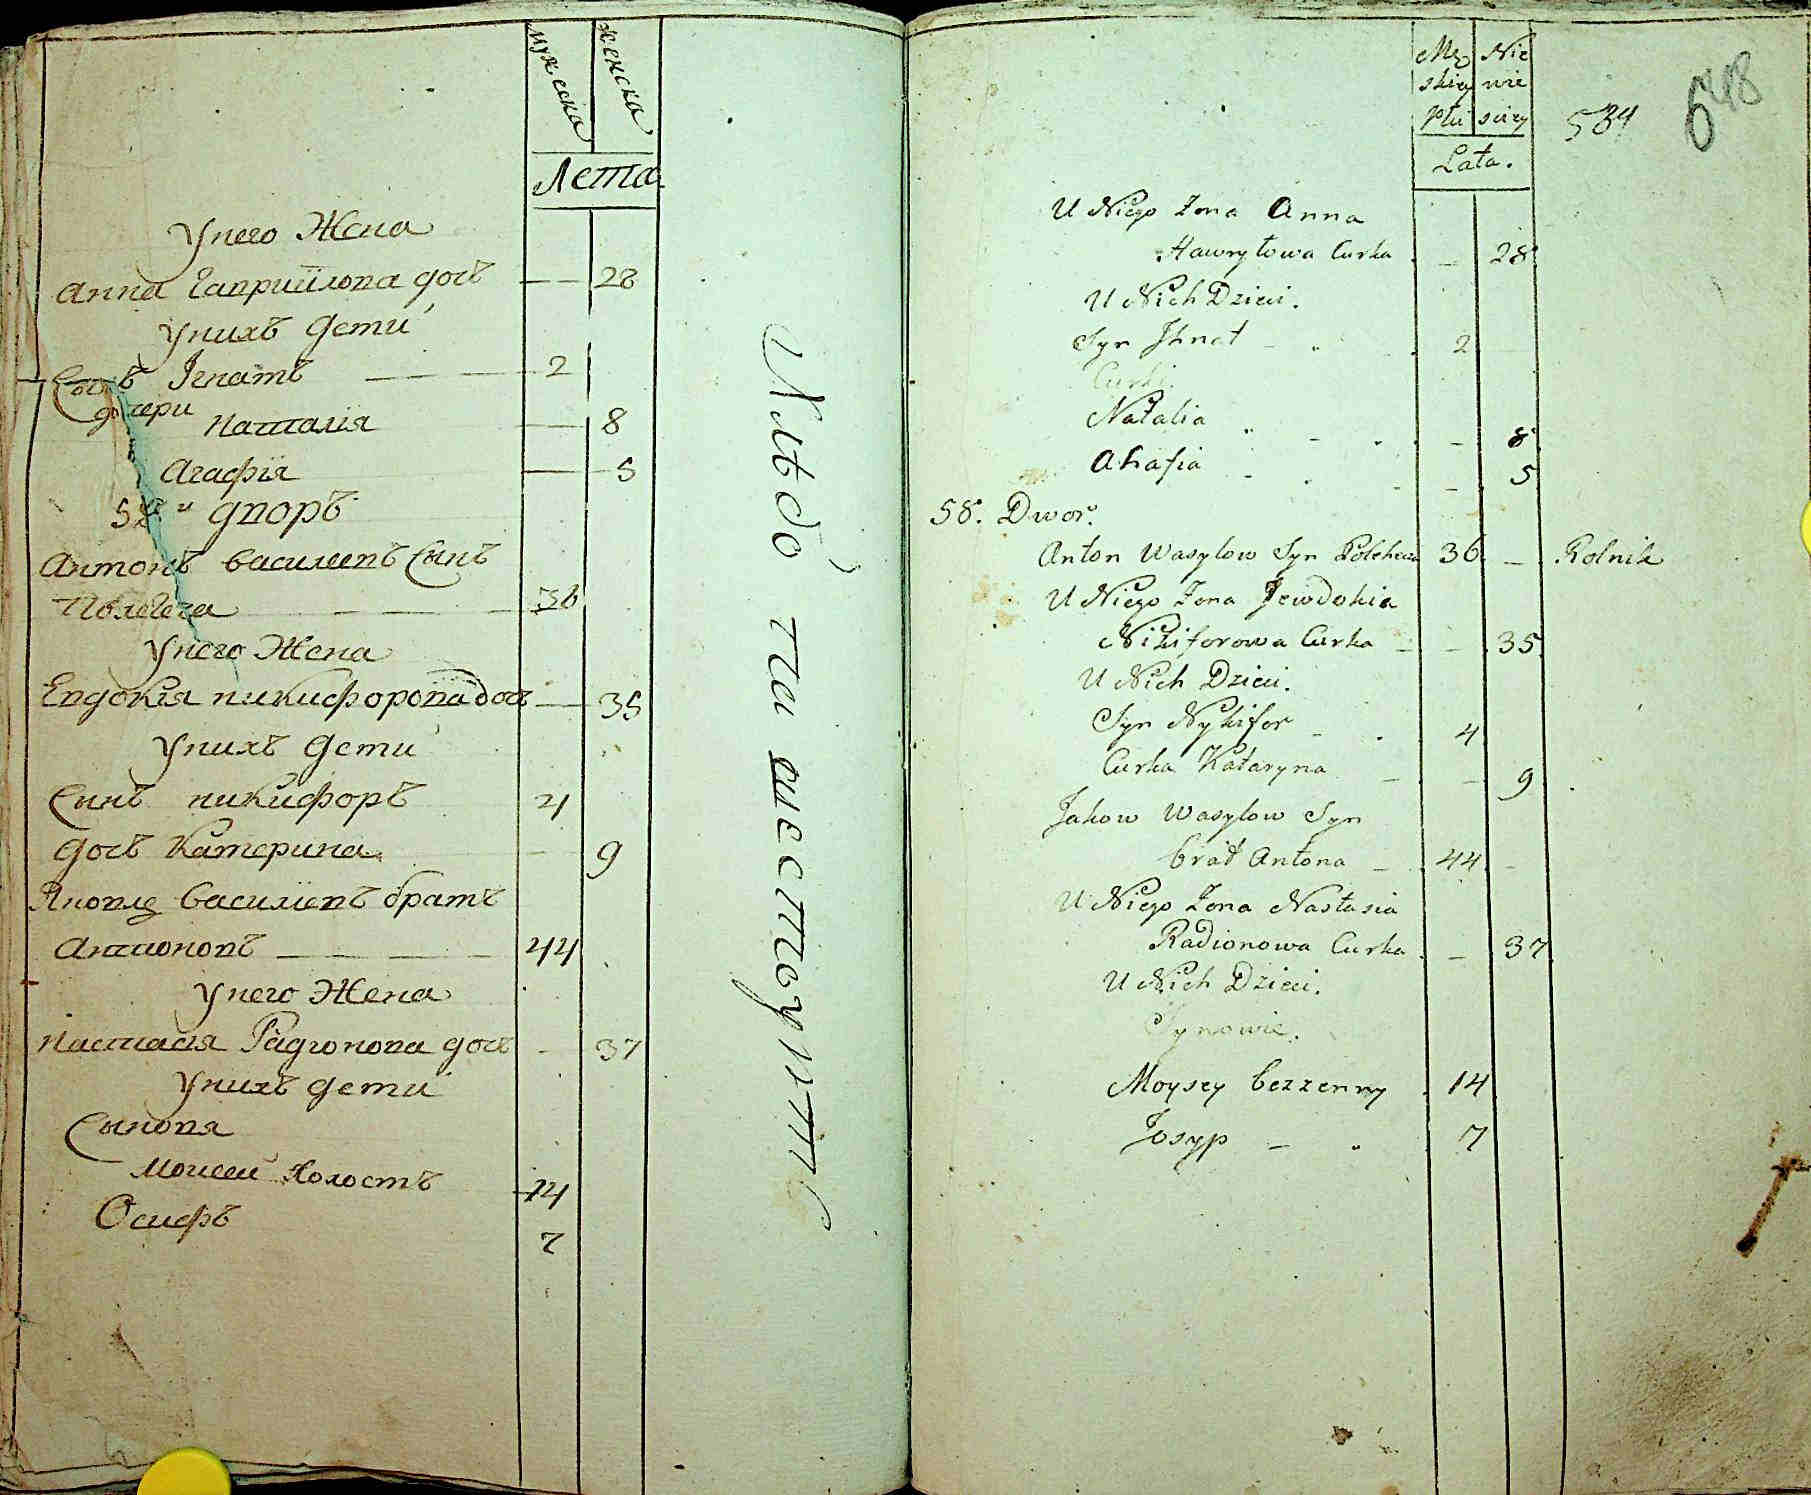 мужеска
женска
Лета
У него Жена
Анна Гавриилова дочь — 28
У нихъ дети
Сынъ Игнатъ — 2
дочери
Наталія — 8
Агафія — 5
58й дворъ
Антонъ Василиевъ Сынъ
36
У него Жена
Евдокія никифорова дочь — 35
У нихъ дети
Сынъ никифоръ 4
дочь Катерина — 9
Яковъ Василиевъ братъ
Антоновъ — 44
У него Жена
Настасія Радионова дочь — 37
У нихъ дети
Сыновя
Моисей Холостъ 14
Осифъ 7
Męskiey Płci
Niewiesciey
Lata.
534
648
U Niego Zona Anna
Hawryłowa Curka — 28.
U Nich Dzieci.
Syn Ihnat 2
Curki.
Natalia — 8
Ahafia — 5
58. Dwor.
Anton Wasylow Syn 36 — Rolnik
U Niego Zona Jewdokia
Nikiforowa Curka — 35.
U Nich Dzieci.
Syn Nykifor 4
Curka Kataryna — 9
Jakow Wasylow Syn
brat Antona — 44
U Niego Zona Nastasia
Radionowa Curka — 37
U Nich Dzieci.
Synowie.
Moysey bezzenny 14
Josyp — 7